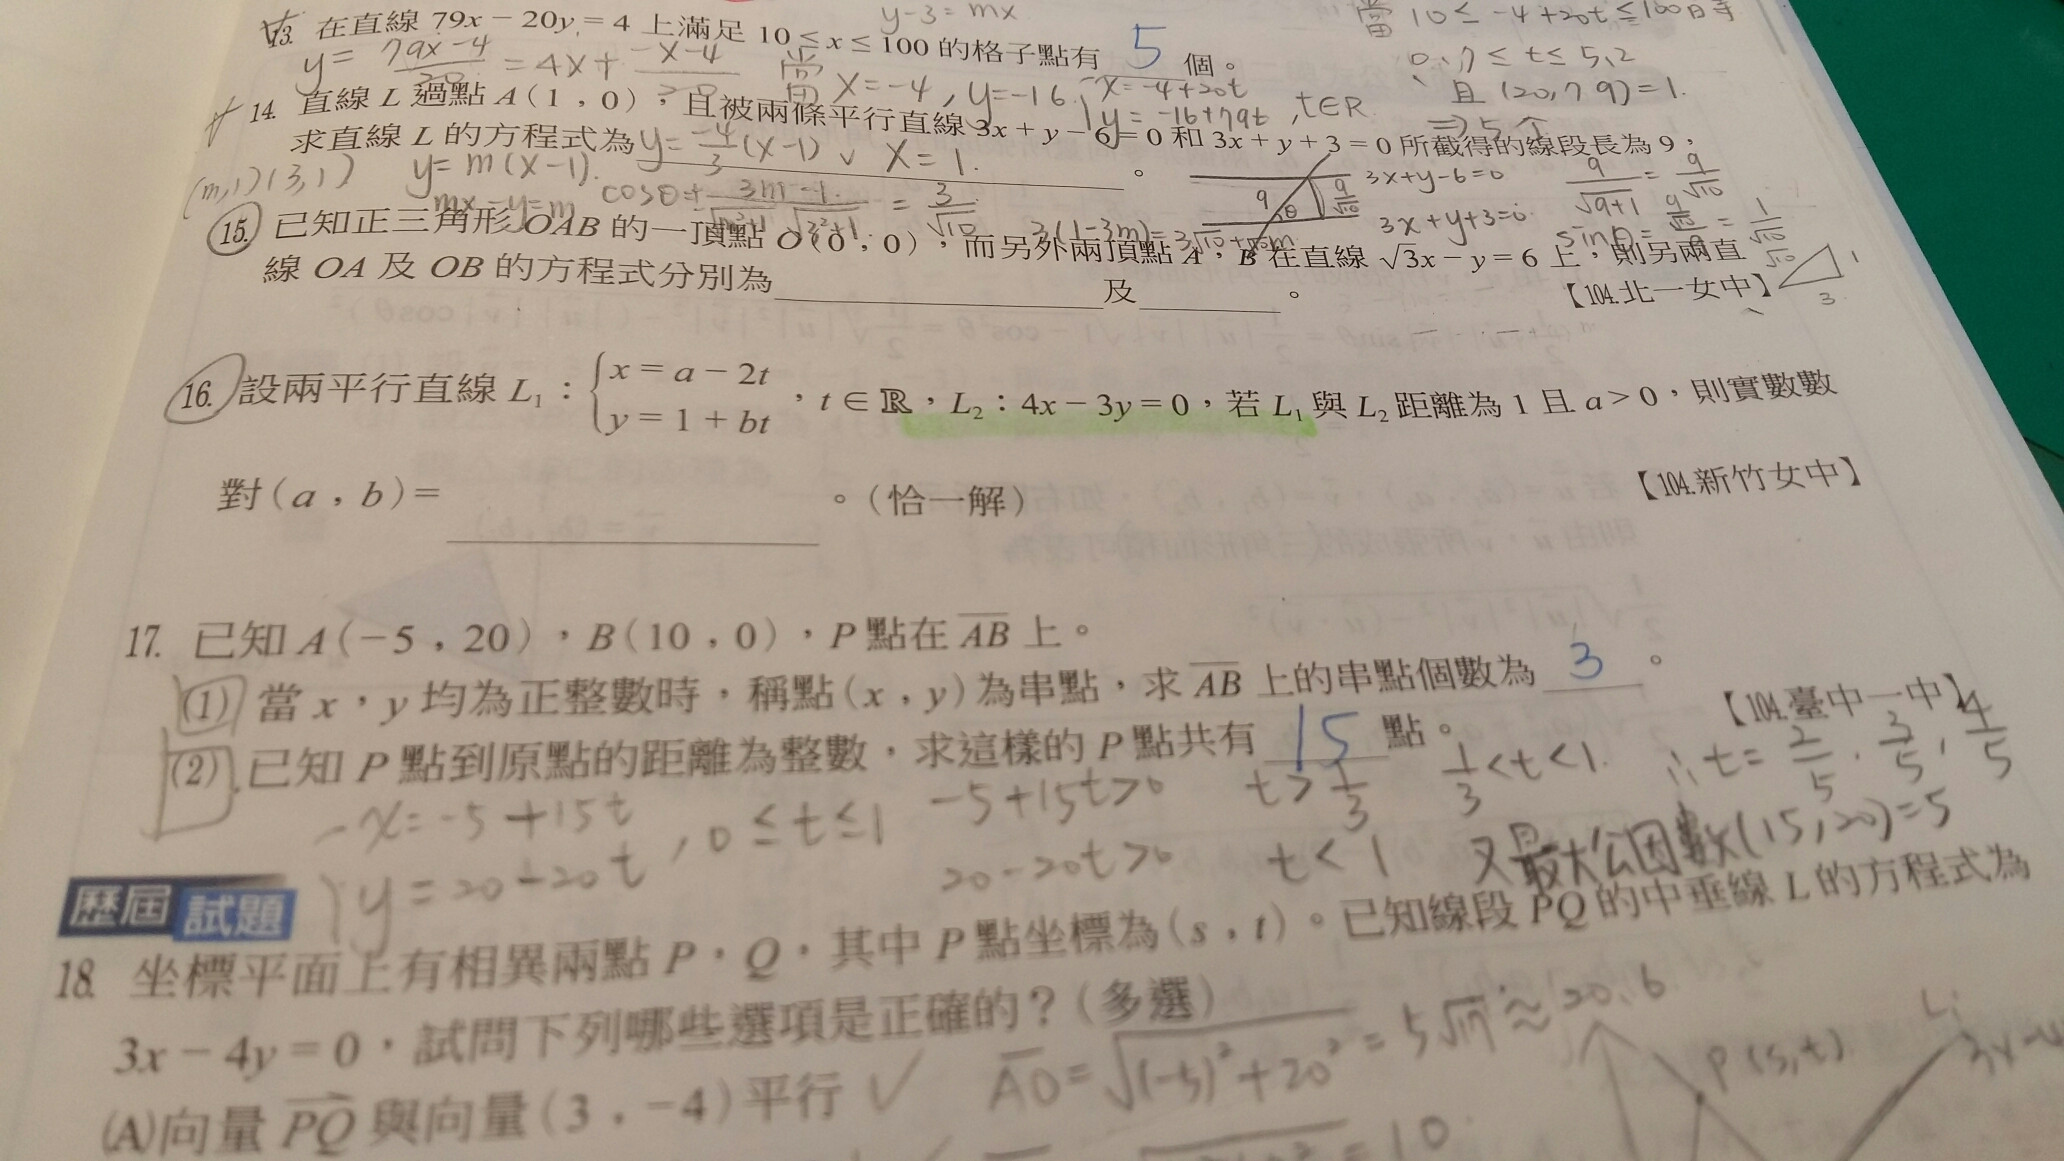 y-3=mx
當 10≤-4+20t≤100時
13. 在直線 79x-20y=4 上滿足 10≤x≤100 的格子點有 5 個。
0.7≤t≤5.2
y=79x-4/20=4x+-x-4/20 當 x=-4, y=-16. x=-4+20t
y=-16+79t, t∈R
且(20,79)=1.
⇒5個
14. 直線 L 過點 A(1,0),且被兩條平行直線 3x+y-6=0 和 3x+y+3=0 所截得的線段長為 9,
求直線 L 的方程式為 y=-4/3(x-1) ∨ x=1. 。
(m,1)(3,1) y=m(x-1).
mx-y=m
3x+y-6=0
9/√9+1=9/√10
3x+y+3=0
15. 已知正三角形 OAB 的一頂點 O(0,0),而另外兩頂點 A,B 在直線 √3x-y=6 上,則另兩直
線 OA 及 OB 的方程式分別為 及 。 【104.北一女中】
16. 設兩平行直線 L₁:{x=a-2t
y=1+bt,t∈ℝ,L₂:4x-3y=0,若 L₁ 與 L₂ 距離為 1 且 a>0,則實數數
對(a,b)= 。(恰一解) 【104.新竹女中】
17. 已知 A(-5,20),B(10,0),P 點在 AB 上。
(1) 當 x,y 均為正整數時,稱點(x,y)為串點,求 AB 上的串點個數為 3 。
【104.臺中一中】
(2) 已知 P 點到原點的距離為整數,求這樣的 P 點共有 15 點。
x=-5+15t
y=20-20t, 0≤t≤1
-5+15t>0 t>1/3 1/3<t<1. ∴t=2/5, 3/5, 4/5
20-20t>0 t<1 又最大公因數(15,20)=5
歷屆試題
18. 坐標平面上有相異兩點 P,Q,其中 P 點坐標為(s,t)。已知線段 PQ 的中垂線 L 的方程式為
3x-4y=0,試問下列哪些選項是正確的?(多選)
(A)向量 PQ 與向量(3,-4)平行 ✓
AO=√(-5)²+20²=5√17≈20.6
P(s,t)
=10